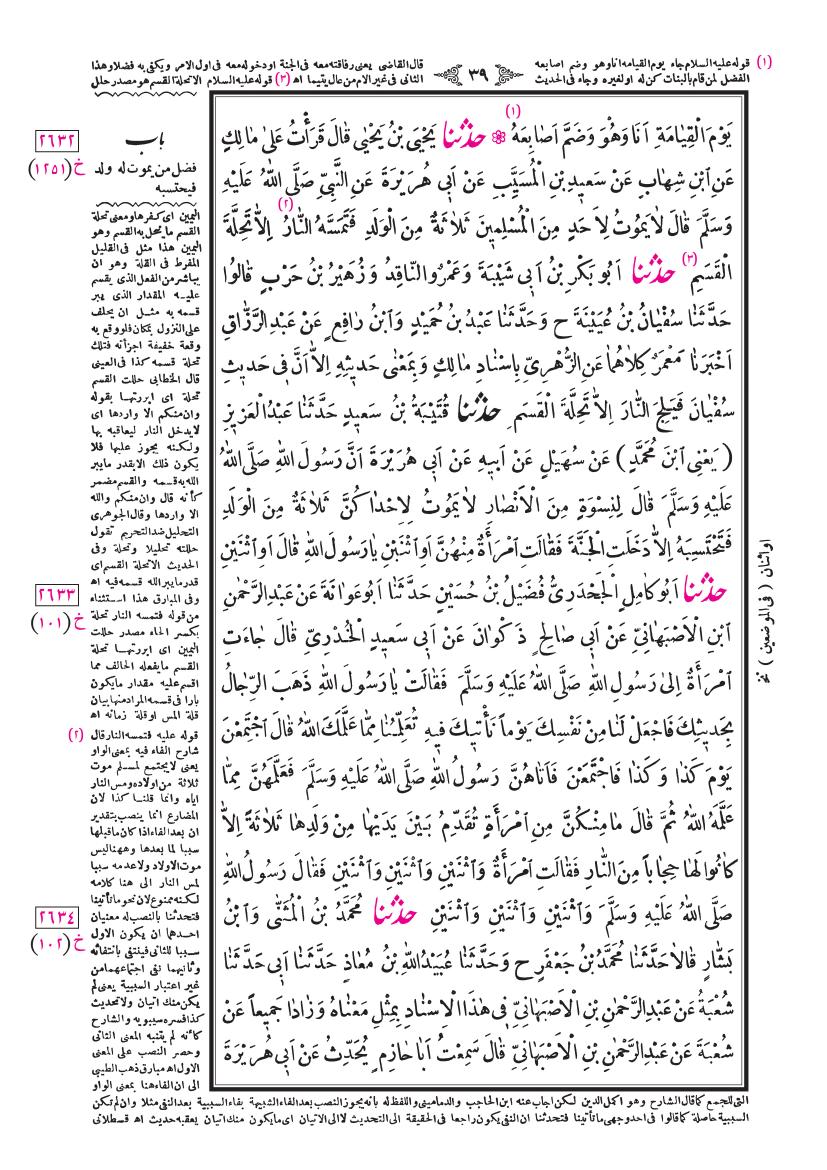 (١) قوله عليه السلام جاء يوم القيامه انا وهو وضم اصابعه
الفضل لمن قام بالبنات كن له اولغيره وجاء فى الحديث
٣٩
قال القاضى يعنى رفاقته معه فى الجنة اودخوله معه فى اول الامر ويكفى به فضلا وهذا
الثانى فى غير الام من عال يتيما اه (٣) قوله عليه السلام الاتحلة القسم هو مصدر حلل
(١)
يَوْمَ الْقِيَامَةِ اَنَا وَهُوَ وَضَمَّ اَصَابِعَهُ ۞ حَدَّثَنَا يَحْيَى بْنُ يَحْيٰى قَالَ قَرَأْتُ عَلٰى مَالِكٍ
عَنِ ابْنِ شِهَابٍ عَنْ سَعِيدِ بْنِ الْمُسَيَّبِ عَنْ اَبِى هُرَيْرَةَ عَنِ النَّبِىِّ صَلَّى اللهُ عَلَيْهِ
وَسَلَّمَ قَالَ لَايَمُوتُ لِاَحَدٍ مِنَ الْمُسْلِمِينَ ثَلَاثَةٌ مِنَ الْوَلَدِ فَتَمَسَّهُ النَّارُ (٢) اِلَّاتَحِلَّةَ
الْقَسَمِ (٣) حَدَّثَنَا اَبُو بَكْرِ بْنُ اَبِى شَيْبَةَ وَعَمْرٌو النَّاقِدُ وَزُهَيْرُ بْنُ حَرْبٍ قَالُوا
حَدَّثَنَا سُفْيَانُ بْنُ عُيَيْنَةَ ح وَحَدَّثَنَا عَبْدُ بْنُ حُمَيْدٍ وَابْنُ رَافِعٍ عَنْ عَبْدِ الرَّزَّاقِ
اَخْبَرَنَا مَعْمَرٌ كِلَاهُمَا عَنِ الزُّهْرِىِّ بِاِسْنَادِ مَالِكٍ وَبِمَعْنٰى حَدِيثِهِ اِلَّا اَنَّ فِى حَدِيثِ
سُفْيَانَ فَيَلِجَ النَّارَ اِلَّاتَحِلَّةَ الْقَسَمِ حَدَّثَنَا قُتَيْبَةُ بْنُ سَعِيدٍ حَدَّثَنَا عَبْدُ الْعَزِيزِ
( يَعْنِى ابْنَ مُحَمَّدٍ ) عَنْ سُهَيْلٍ عَنْ اَبِيهِ عَنْ اَبِى هُرَيْرَةَ اَنَّ رَسُولَ اللهِ صَلَّى اللهُ
عَلَيْهِ وَسَلَّمَ قَالَ لِنِسْوَةٍ مِنَ الْاَنْصَارِ لَايَمُوتُ لِاِحْدَاكُنَّ ثَلَاثَةٌ مِنَ الْوَلَدِ
فَتَحْتَسِبَهُ اِلَّا دَخَلَتِ الْجَنَّةَ فَقَالَتِ امْرَأَةٌ مِنْهُنَّ اَوِ اثْنَيْنِ يَارَسُولَ اللهِ قَالَ اَوِ اثْنَيْنِ
حَدَّثَنَا اَبُوكَامِلٍ الْجَحْدَرِىُّ فُضَيْلُ بْنُ حُسَيْنٍ حَدَّثَنَا اَبُوعَوَانَةَ عَنْ عَبْدِ الرَّحْمٰنِ
ابْنِ الْاَصْبَهَانِىِّ عَنْ اَبِى صَالِحٍ ذَكْوَانَ عَنْ اَبِى سَعِيدٍ الْخُدْرِىِّ قَالَ جَاءَتِ
امْرَأَةٌ اِلٰى رَسُولِ اللهِ صَلَّى اللهُ عَلَيْهِ وَسَلَّمَ فَقَالَتْ يَارَسُولَ اللهِ ذَهَبَ الرِّجَالُ
بِحَدِيثِكَ فَاجْعَلْ لَنَا مِنْ نَفْسِكَ يَوْمًا نَأْتِيكَ فِيهِ تُعَلِّمُنَا مِمَّا عَلَّمَكَ اللهُ قَالَ اجْتَمِعْنَ
يَوْمَ كَذَا وَكَذَا فَاجْتَمَعْنَ فَاَتَاهُنَّ رَسُولُ اللهِ صَلَّى اللهُ عَلَيْهِ وَسَلَّمَ فَعَلَّمَهُنَّ مِمَّا
عَلَّمَهُ اللهُ ثُمَّ قَالَ مَا مِنْكُنَّ مِنِ امْرَأَةٍ تُقَدِّمُ بَيْنَ يَدَيْهَا مِنْ وَلَدِهَا ثَلَاثَةً اِلَّا
كَانُوا لَهَا حِجَابًا مِنَ النَّارِ فَقَالَتِ امْرَأَةٌ وَاثْنَيْنِ وَاثْنَيْنِ وَاثْنَيْنِ فَقَالَ رَسُولُ اللهِ
صَلَّى اللهُ عَلَيْهِ وَسَلَّمَ وَاثْنَيْنِ وَاثْنَيْنِ وَاثْنَيْنِ حَدَّثَنَا مُحَمَّدُ بْنُ الْمُثَنَّى وَابْنُ
بَشَّارٍ قَالَا حَدَّثَنَا مُحَمَّدُ بْنُ جَعْفَرٍ ح وَحَدَّثَنَا عُبَيْدُ اللهِ بْنُ مُعَاذٍ حَدَّثَنَا اَبِى حَدَّثَنَا
شُعْبَةُ عَنْ عَبْدِ الرَّحْمٰنِ بْنِ الْاَصْبَهَانِىِّ فِى هٰذَا الْاِسْنَادِ بِمِثْلِ مَعْنَاهُ وَزَادَا جَمِيعًا عَنْ
شُعْبَةَ عَنْ عَبْدِ الرَّحْمٰنِ بْنِ الْاَصْبَهَانِىِّ قَالَ سَمِعْتُ اَبَا حَازِمٍ يُحَدِّثُ عَنْ اَبِى هُرَيْرَةَ
اواثنان ( فى الموضعين ) نخ
باب
فضل من يموت له ولد
فيحتسبه
٢٦٣٢
خ (١٢٥١)
٢٦٣٣
خ (١٠١)
٢٦٣٤
خ (١٠٢)
اليمين اى كفرها ومعنى تحلة
القسم ما ينحل به القسم وهو
اليمين هذا مثل فى القليل
المفرط فى القلة وهو ان
يباشر من الفعل الذى يقسم
عليه المقدار الذى يبر
قسمه به مثل ان يحلف
على النزول بمكان فلو وقع به
وقعة خفيفة اجزأته فتلك
تحلة قسمه كذا فى العينى
قال الخطابى حللت القسم
تحلة اى ابررتها بقوله
وان منكم الا واردها اى
لايدخل النار ليعاقبه بها
ولكنه يجوز عليها فلا
يكون ذلك الابقدر مايبر
الله به قسمه والقسم مضمر
كأنه قال وان منكم والله
الا واردها وقال الجوهرى
التحليل ضد التحريم تقول
حللته تحليلا وتحلة وفى
الحديث الاتحلة القسم اى
قدر مايبر الله قسمه فيه اه
وفى المبارق هذا استثناء
من قوله فتمسه النار تحلة
بكسر الحاء مصدر حللت
اليمين اى ابررتها تحلة
القسم مايفعله الحالف مما
اقسم عليه مقدار مايكون
بارا فى قسمه المراد منها بيان
قلة المس اوقلة زمانه اه
(٢) قوله عليه فتمسه النار قال
شارح الفاء فيه بمعنى الواو
يعنى لايجتمع لمسلم موت
ثلاثة من اولاده ومس النار
اياه وانما قلنا كذا لان
المضارع انما ينصب بتقدير
ان بعد الفاء اذا كان ماقبلها
سببا لما بعدها وههنا ليس
موت الاولاد ولا عدمه سببا
لمس النار الى هنا كلامه
لكنه ممنوع لان نحو ما تأتينا
فتحدثنا بالنصب له معنيان
احدهما ان يكون الاول
سببا للثانى فينتفى بانتفائه
وثانيهما نفى اجتماعهما من
غير اعتبار السببية يعنى لم
يكن منك اتيان ولا تحديث
كذا فسره سيبويه والشارح
كأنه لم يتنبه المعنى الثانى
وحصر النصب على المعنى
الاول اه مبارق ذهب الطيبى
الى ان الفاء هنا بمعنى الواو
التى للجمع كما قال الشارح وهو اكمل الدين لكن اجاب عنه ابن الحاجب والدمامينى واللفظ له بأنه يجوز النصب بعد الفاء الشبيهة بفاء السببية بعد النفى مثلا وان لم تكن
السببية حاصلة كما قالوا فى احد وجهى ماتأتينا فتحدثنا ان النفى يكون راجعا فى الحقيقة الى التحديث لا الى الاتيان اى مايكون منك اتيان يعقبه حديث اه قسطلانى